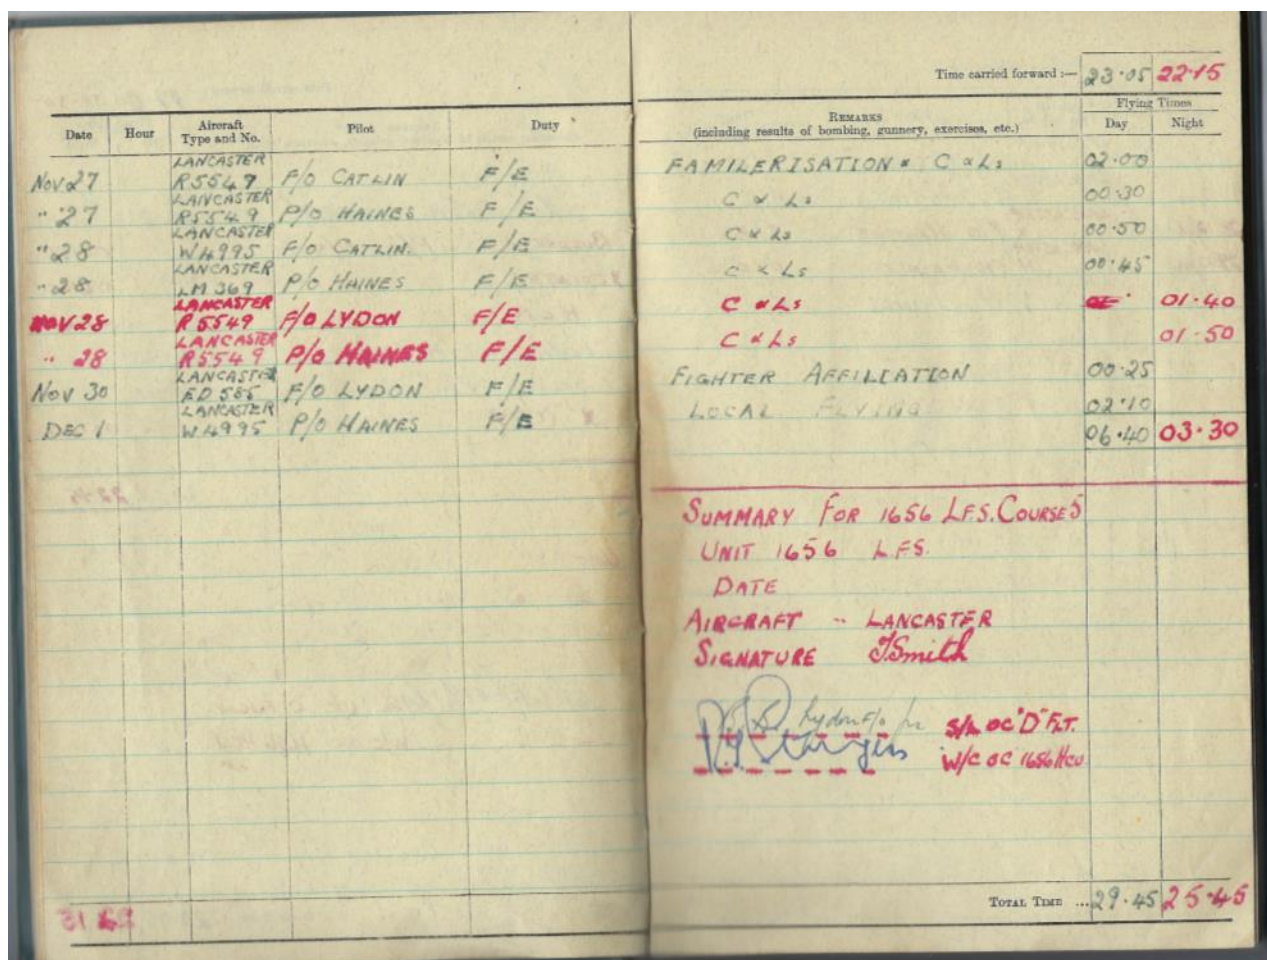 Time carried forward :— 23·05 22·15
Date Hour Aircraft Type and No. Pilot Duty REMARKS (including results of bombing, gunnery, exercises, etc.) Flying Times Day Night
Nov 27 LANCASTER R5547 F/O CATLIN F/E FAMILERISATION & C & Ls 02·00
" 27 LANCASTER R5549 P/O HAINES F/E C & Ls 00·30
" 28 LANCASTER W4995 F/O CATLIN. F/E C & Ls 00·50
" 28 LANCASTER LM 369 P/O HAINES F/E C & Ls 00·45
NOV 28 LANCASTER R5549 F/O LYDON F/E C & Ls 01·40
" 28 LANCASTER R5549 P/O HAINES F/E C & Ls 01·50
Nov 30 LANCASTER ED 585 F/O LYDON F/E FIGHTER AFFILIATION 00·25
DEC 1 LANCASTER W4995 P/O HAINES F/E LOCAL FLYING 02·10
06·40 03·30
SUMMARY FOR 1656 L.F.S. COURSES
UNIT 1656 L.F.S.
DATE
AIRCRAFT - LANCASTER
SIGNATURE J.Smith
Lydon F/O for S/L OC "D" FLT.
W/C OC 1656 HCU
TOTAL TIME ... 29·45 25·45